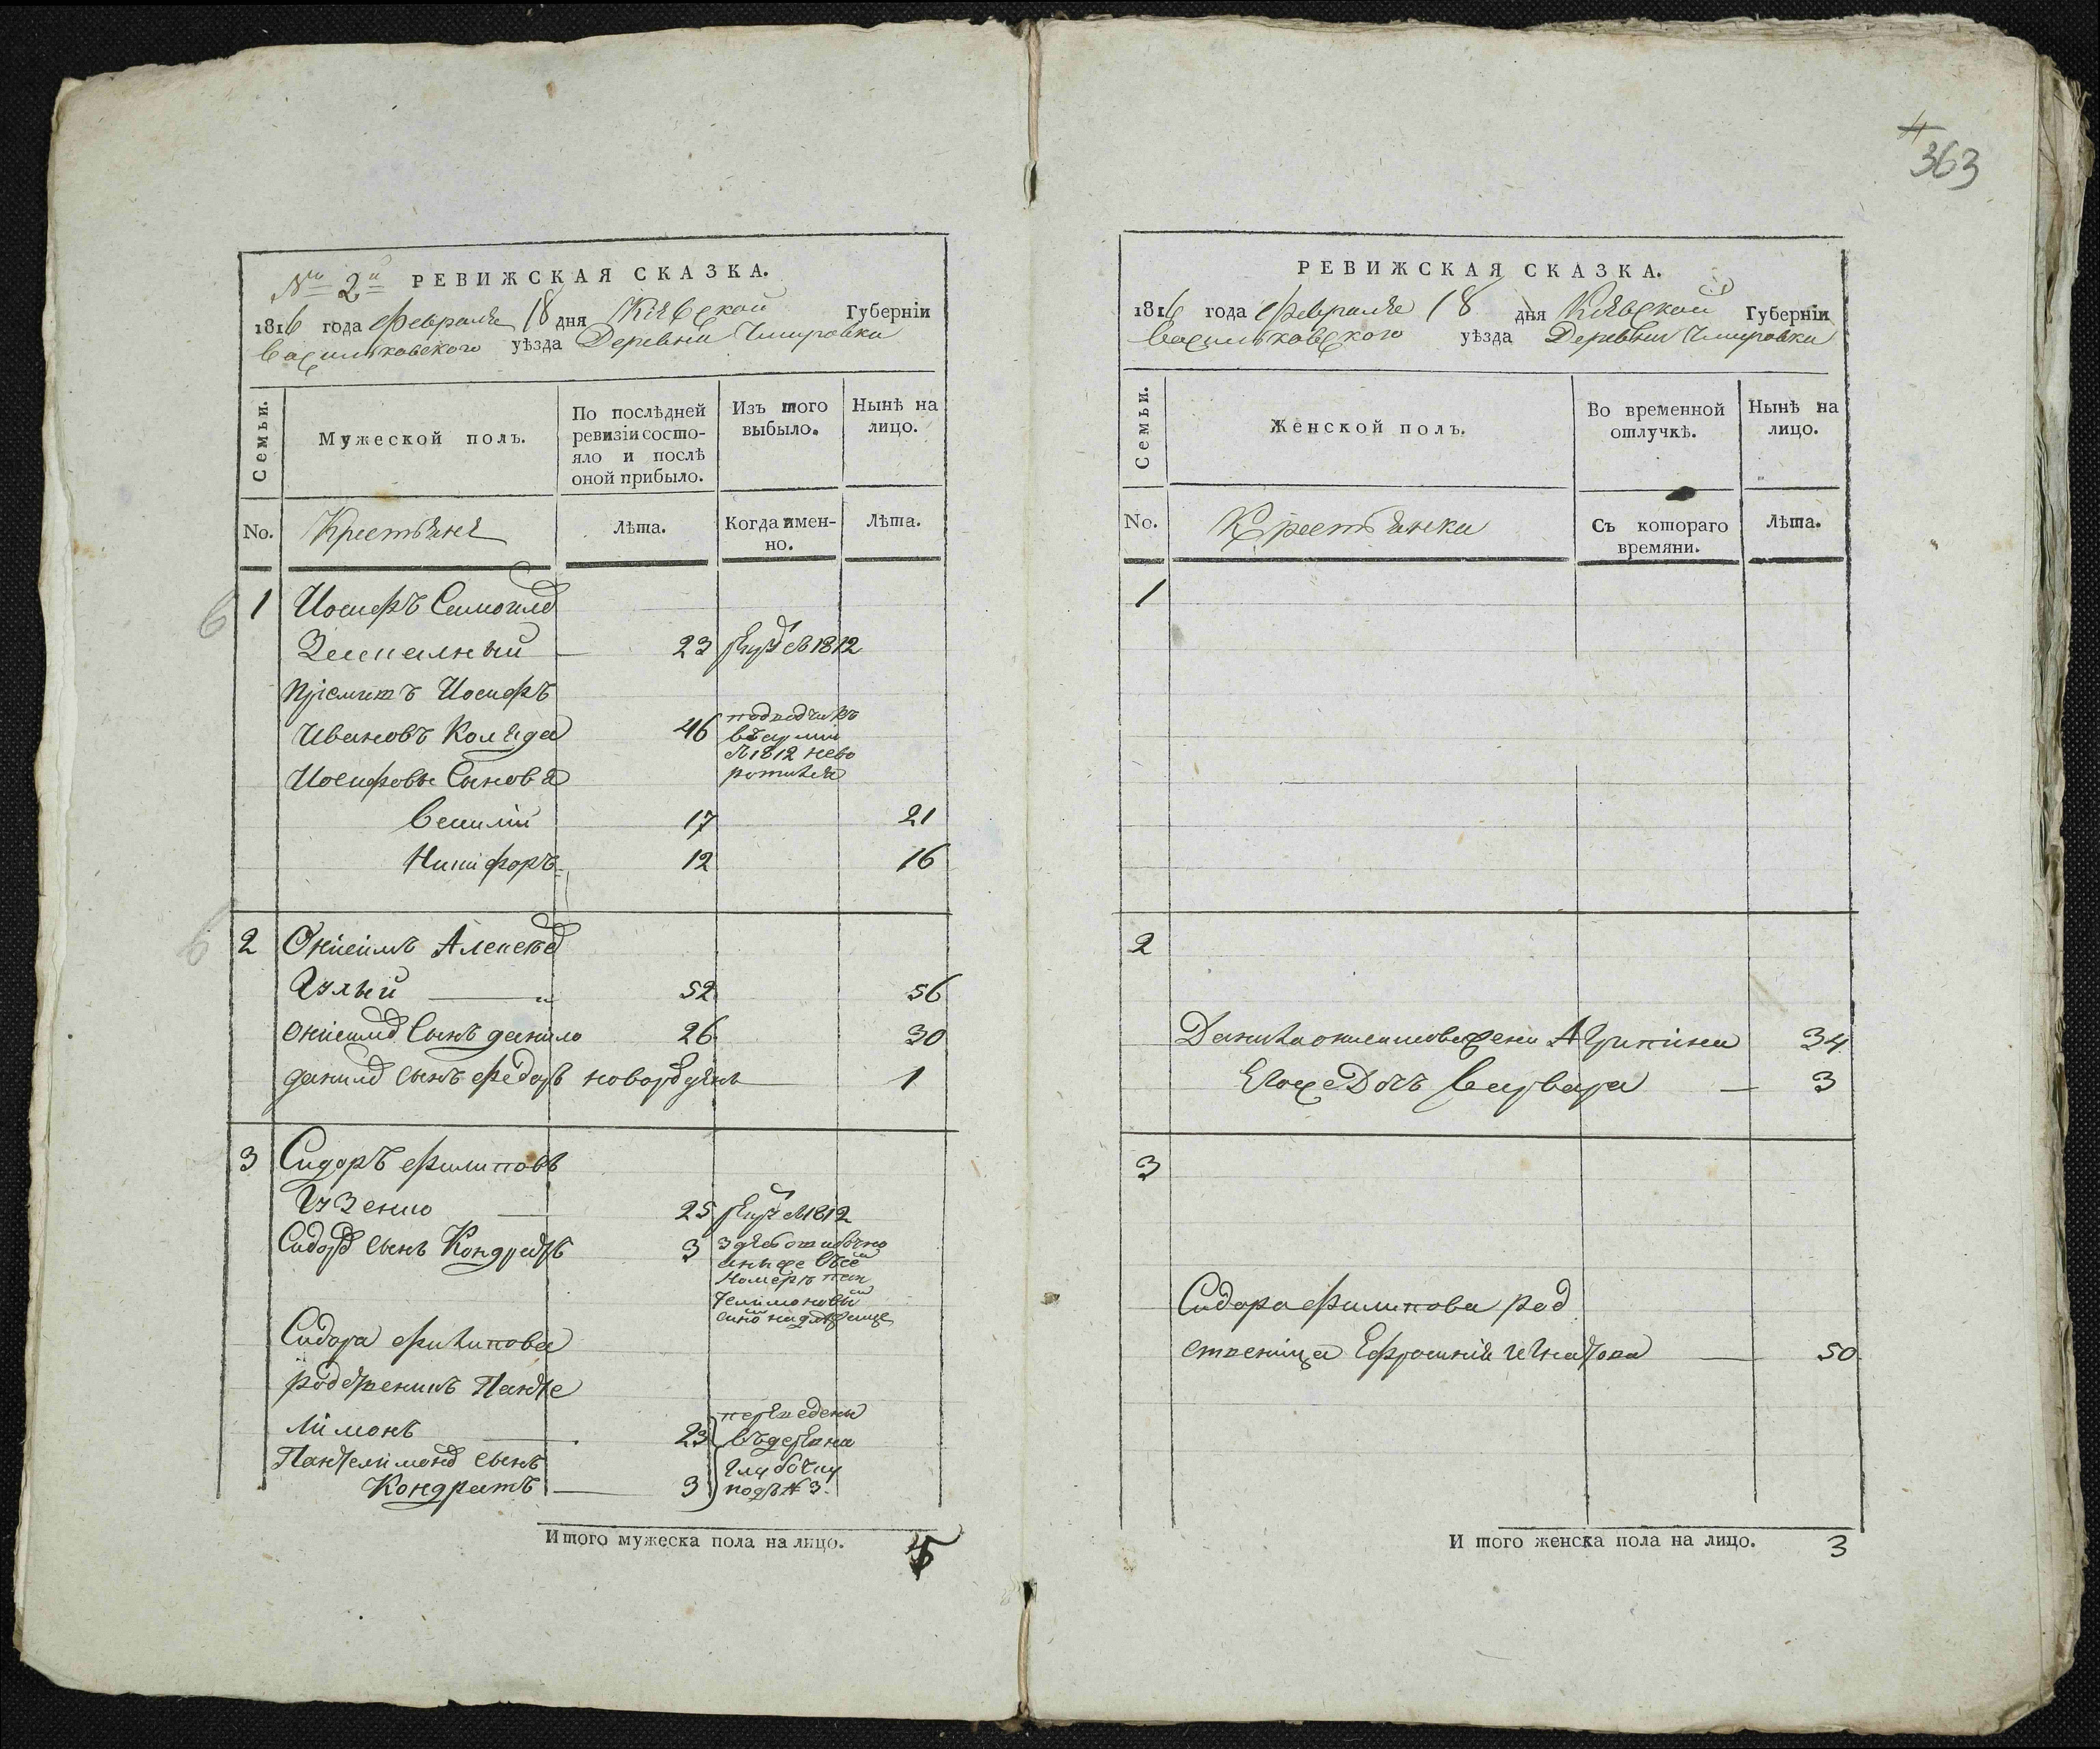 4
363
№ 2й РЕВИЖСКАЯ СКАЗКА.
1816 года Февраля 18 дня Кіевской Губерніи
Васильковского уѣзда Деревни
Семьи.
Мужеской полъ.
По послѣдней ревизіи состо-
яло и послѣ
оной прибыло.
Изъ того
выбыло.
Нынѣ на
лицо.
No.
Крестьяне
Лѣта.
Когда имен-
но.
Лѣта.
6
1 Иосифъ Самойлов
23 1812
Пріемитъ Иосифъ
Ивановъ Коляда 46 подводчикъ
въ армии
1812 нево
ротился
Иосифовы Сыновя
Василій 17 21
Никифоръ 12 16
6
2 Онисимъ Алексѣев
52 56
Онисимов Сынъ данило 26 30
данилов сынъ Федоръ новорожденъ 1
3 Сидоръ Филиповъ
25 1812
Сидоров сынъ Кондратъ 3 здѣсь ошибочно
Номеръ пан
телимоновый
Сидора Филипова
родственикъ Панте
лимонъ 23 переведены
въ деревню
Глубочку
подъ № 3
Пантелимонов сынъ
Кондратъ 3
Итого мужеска пола на лицо. 5
РЕВИЖСКАЯ СКАЗКА.
1816 года Февраля 18 дня Кіевской Губерніи
Васильковского уѣзда Деревни
Семьи.
Женской полъ.
Во временной
отлучкѣ.
Нынѣ на
лицо.
No.
Крестьянки
Съ котораго
времяни.
Лѣта.
1
2
Данила Онисимова жена Агрипина 34
Егоже Дочь Варвара 3
3
Сидора Филипова род
ственица Ефросинія Игнатова 50
И того женска пола на лицо. 3